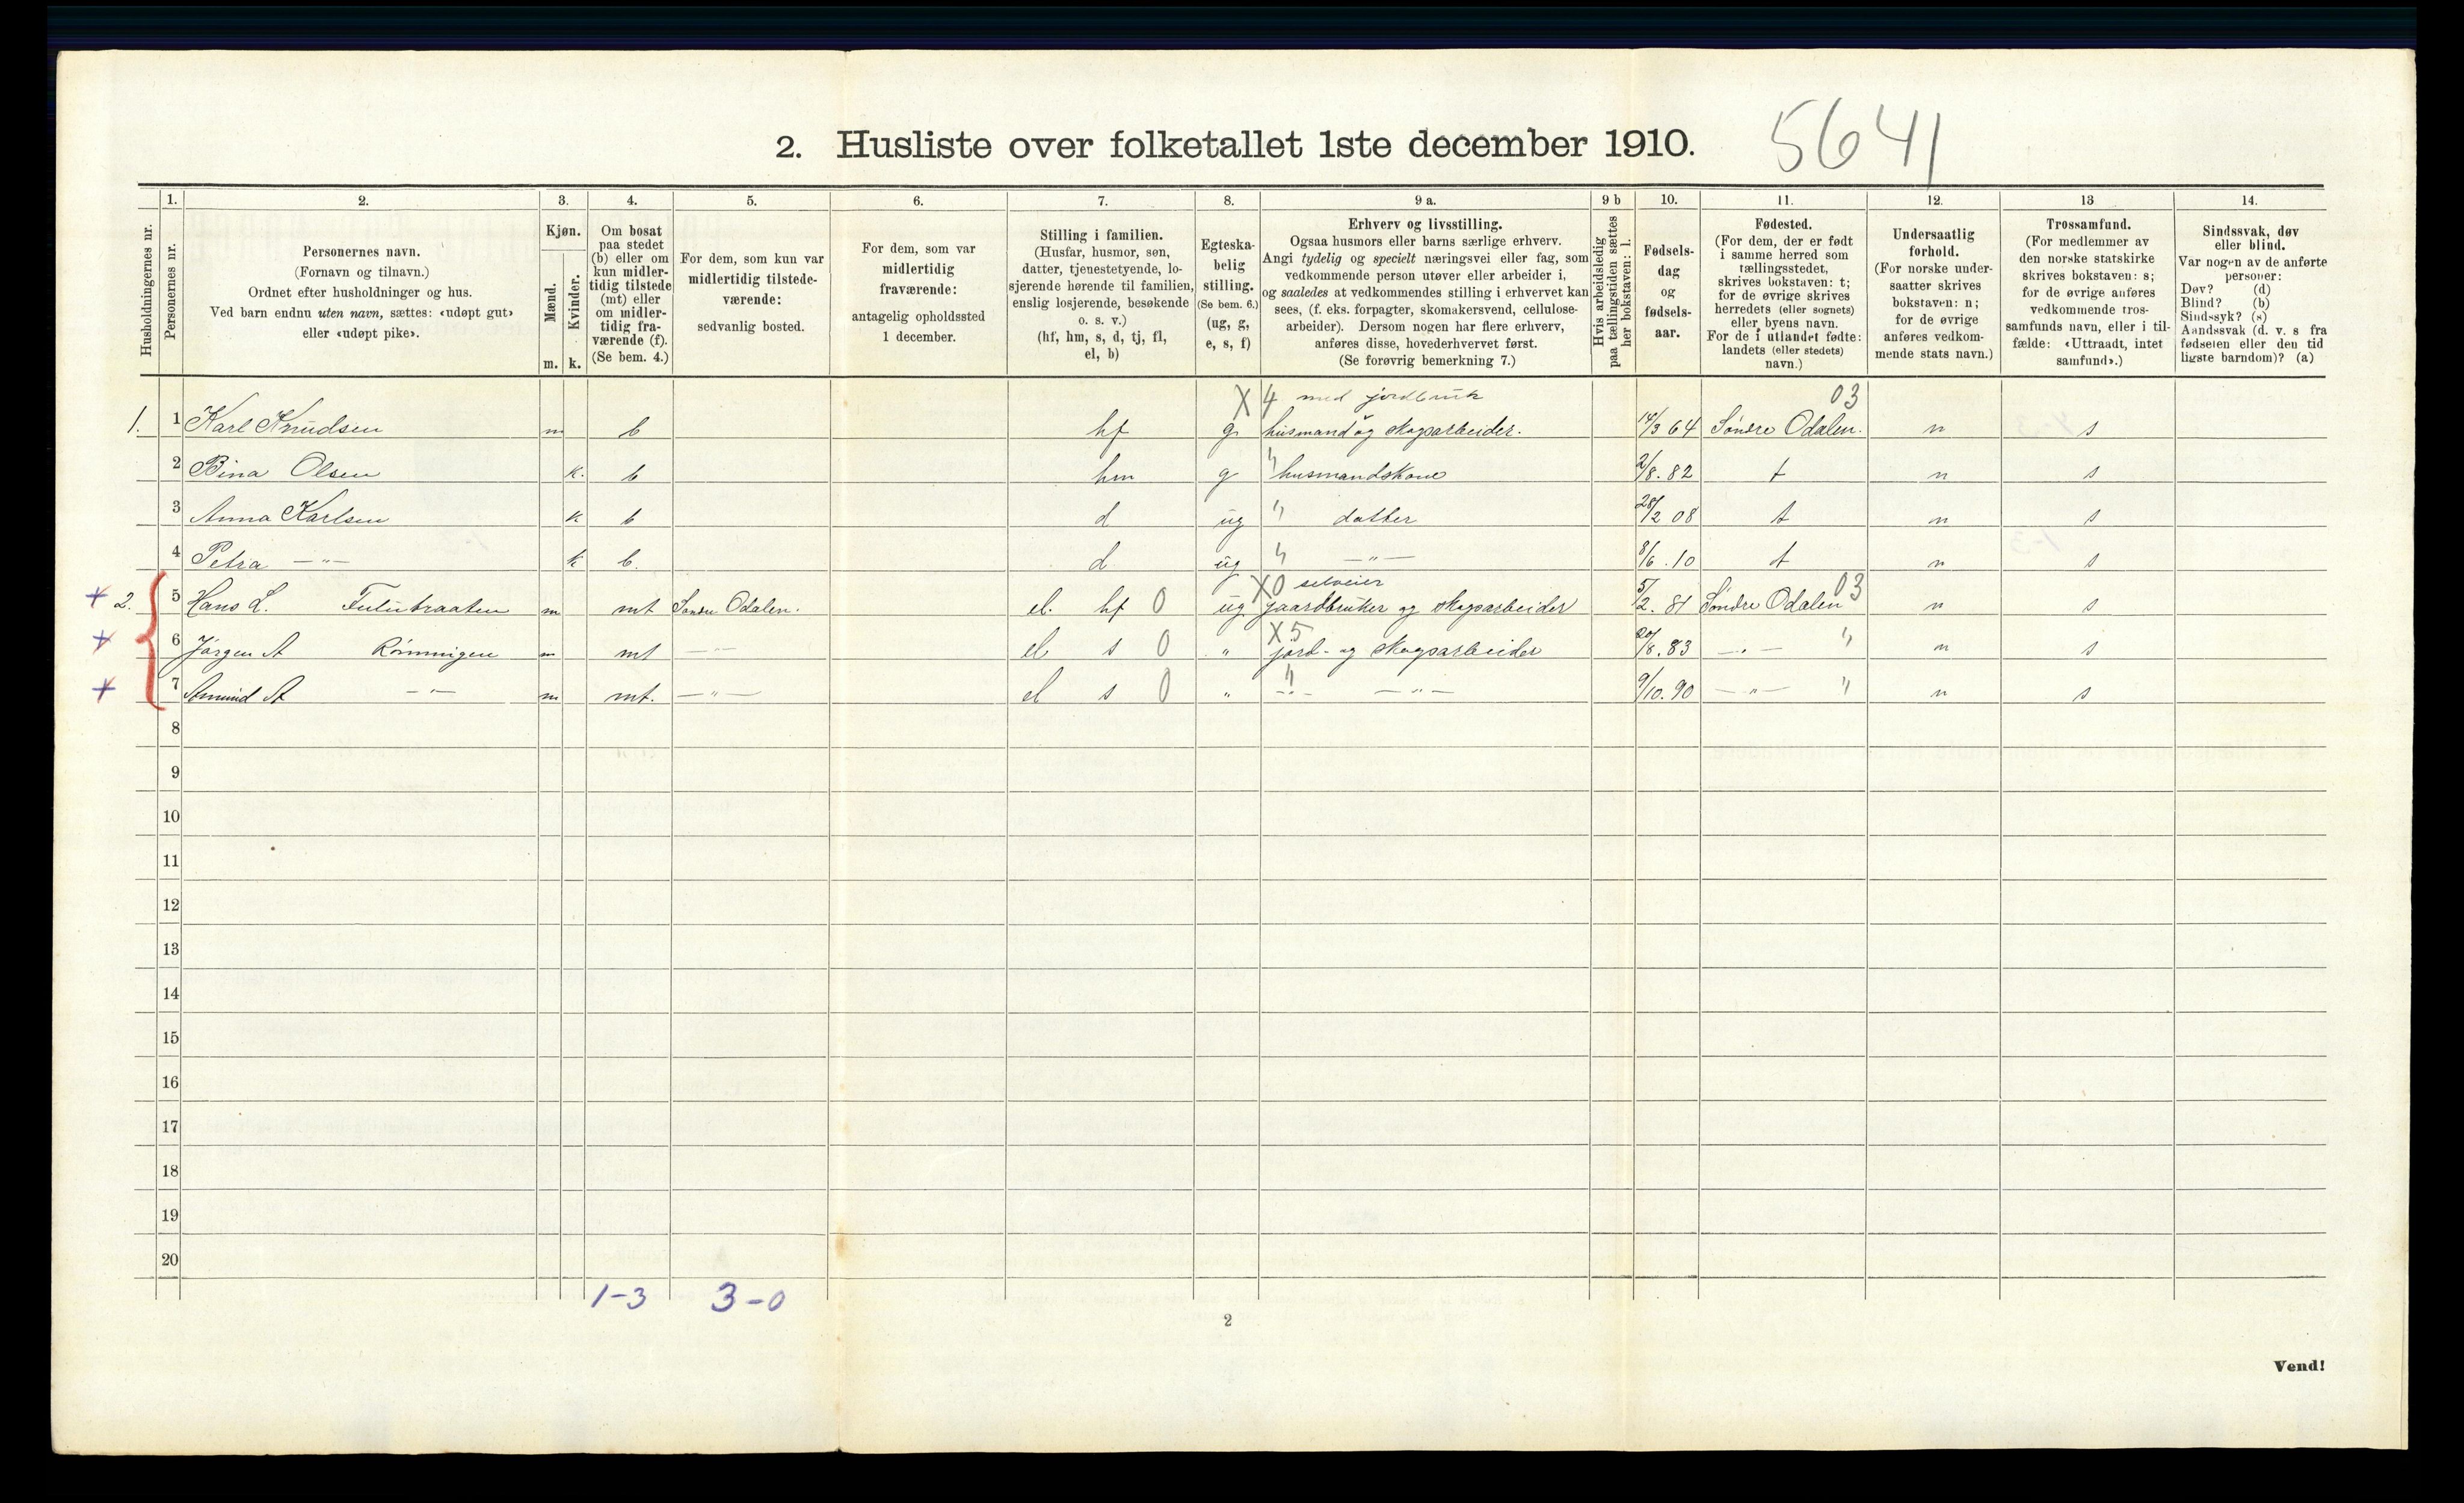 2. Husliste over folketallet 1ste december 1910. 5641
Husholdningernes nr.
1. Personernes nr.
2. Personernes navn.
(Fornavn og tilnavn.)
Ordnet efter husholdninger og hus.
Ved barn endnu uten navn, sættes: «udøpt gut»
eller «udøpt pike».
3. Kjøn.
Mænd. Kvinder.
m. k.
4. Om bosat
paa stedet
(b) eller om
kun midler-
tidig tilstede
(mt) eller
om midler-
tidig fra-
værende (f).
(Se bem. 4.)
5. For dem, som kun var
midlertidig tilstede-
værende:
sedvanlig bosted.
6. For dem, som var
midlertidig
fraværende:
antagelig opholdssted
1 december.
7. Stilling i familien.
(Husfar, husmor, søn,
datter, tjenestetyende, lo-
sjerende hørende til familien,
enslig losjerende, besøkende
o. s. v.)
(hf, hm, s, d, tj, fl,
el, b)
8. Egteska-
belig
stilling.
(Se bem. 6.)
(ug, g,
e, s, f)
9 a. Erhverv og livsstilling.
Ogsaa husmors eller barns særlige erhverv.
Angi tydelig og specielt næringsvei eller fag, som
vedkommende person utøver eller arbeider i,
og saaledes at vedkommendes stilling i erhvervet kan
sees, (f. eks. forpagter, skomakersvend, cellulose-
arbeider). Dersom nogen har flere erhverv,
anføres disse, hovederhvervet først.
(Se forøvrig bemerkning 7.)
9 b Hvis arbeidsledig
paa tællingstiden sættes
her bokstaven: l.
10. Fødsels-
dag
og
fødsels-
aar.
11. Fødested.
(For dem, der er født
i samme herred som
tællingsstedet,
skrives bokstaven: t;
for de øvrige skrives
herredets (eller sognets)
eller byens navn.
For de i utlandet fødte:
landets (eller stedets)
navn.)
12. Undersaatlig
forhold.
(For norske under-
saatter skrives
bokstaven: n;
for de øvrige
anføres vedkom-
mende stats navn.)
13 Trossamfund.
(For medlemmer av
den norske statskirke
skrives bokstaven: s;
for de øvrige anføres
vedkommende tros-
samfunds navn, eller i til-
fælde: «Uttraadt, intet
samfund».)
14. Sindssvak, døv
eller blind.
Var nogen av de anførte
personer:
Døv? (d)
Blind? (b)
Sindssyk? (s)
Aandssvak (d. v. s fra
fødselen eller den tid
ligste barndom)? (a)
X 4 med jordbruk 03
1. 1 Karl Knudsen m b hf g husmand og skogsarbeider. 14/3 64 Søndre Odalen. n s
2 Bina Olsen k. b hm g " husmandskone 2/8. 82 t n s
3 Anna Karlsen k b d ug " datter 28/2 08 t n s
4 Petra —"— k b. d ug " —"— 8/6. 10 t n s
X0 selveier 03
+ 2. 5 Hans L. mt Søndre Odalen. el. hf 0 ug gaardbruker og skogsarbeider 5/2. 81 Søndre Odalen n s
X5
+ 6 Jørgen A Rønningen m mt —"— el s 0 " jord- og skogsarbeider 20/8. 83 —"— " n s
+ 7 Amund A —"— m mt. —"— el s 0 " —"— —"— 9/10. 90 —"— " n s
8
9
10
11
12
13
14
15
16
17
18
19
20
1-3 3-0
2
Vend!